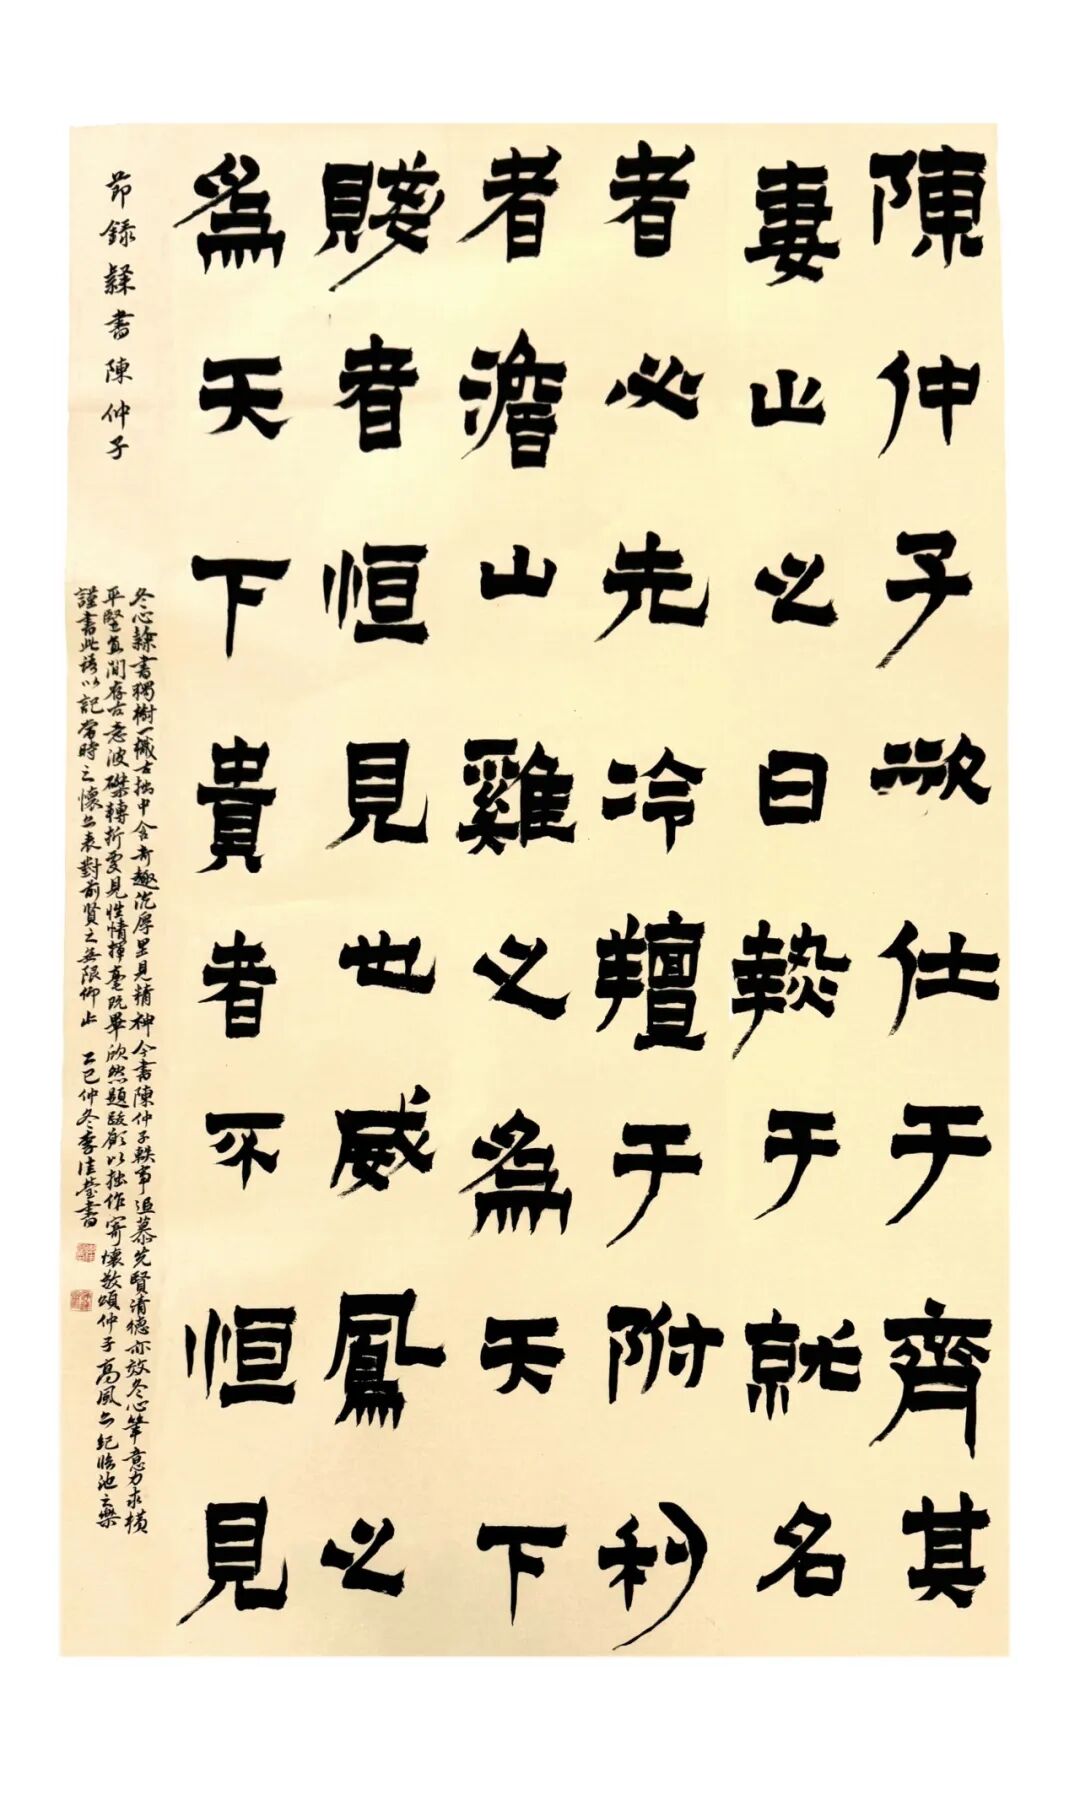 陳仲子欲仕于齊其
妻止之曰熱于就名
者必先冷羶于附利
者澹山雞之為天下
賤者恒見也威鳳之
為天下貴者不恒見
節錄隸書陳仲子
冬心隸書獨樹一幟古拙中含奇趣沉厚里見精神今書陳仲子軼事追慕先賢清德亦效冬心筆意力求橫
平豎直間存古意波磔轉折處見性情揮毫既畢欣然題跋願以拙作寄懷敬頌仲子高風亦紀臨池之樂
謹書此語以記當時之懷亦表對前賢之無限仰止 乙巳仲冬李佳瑩書